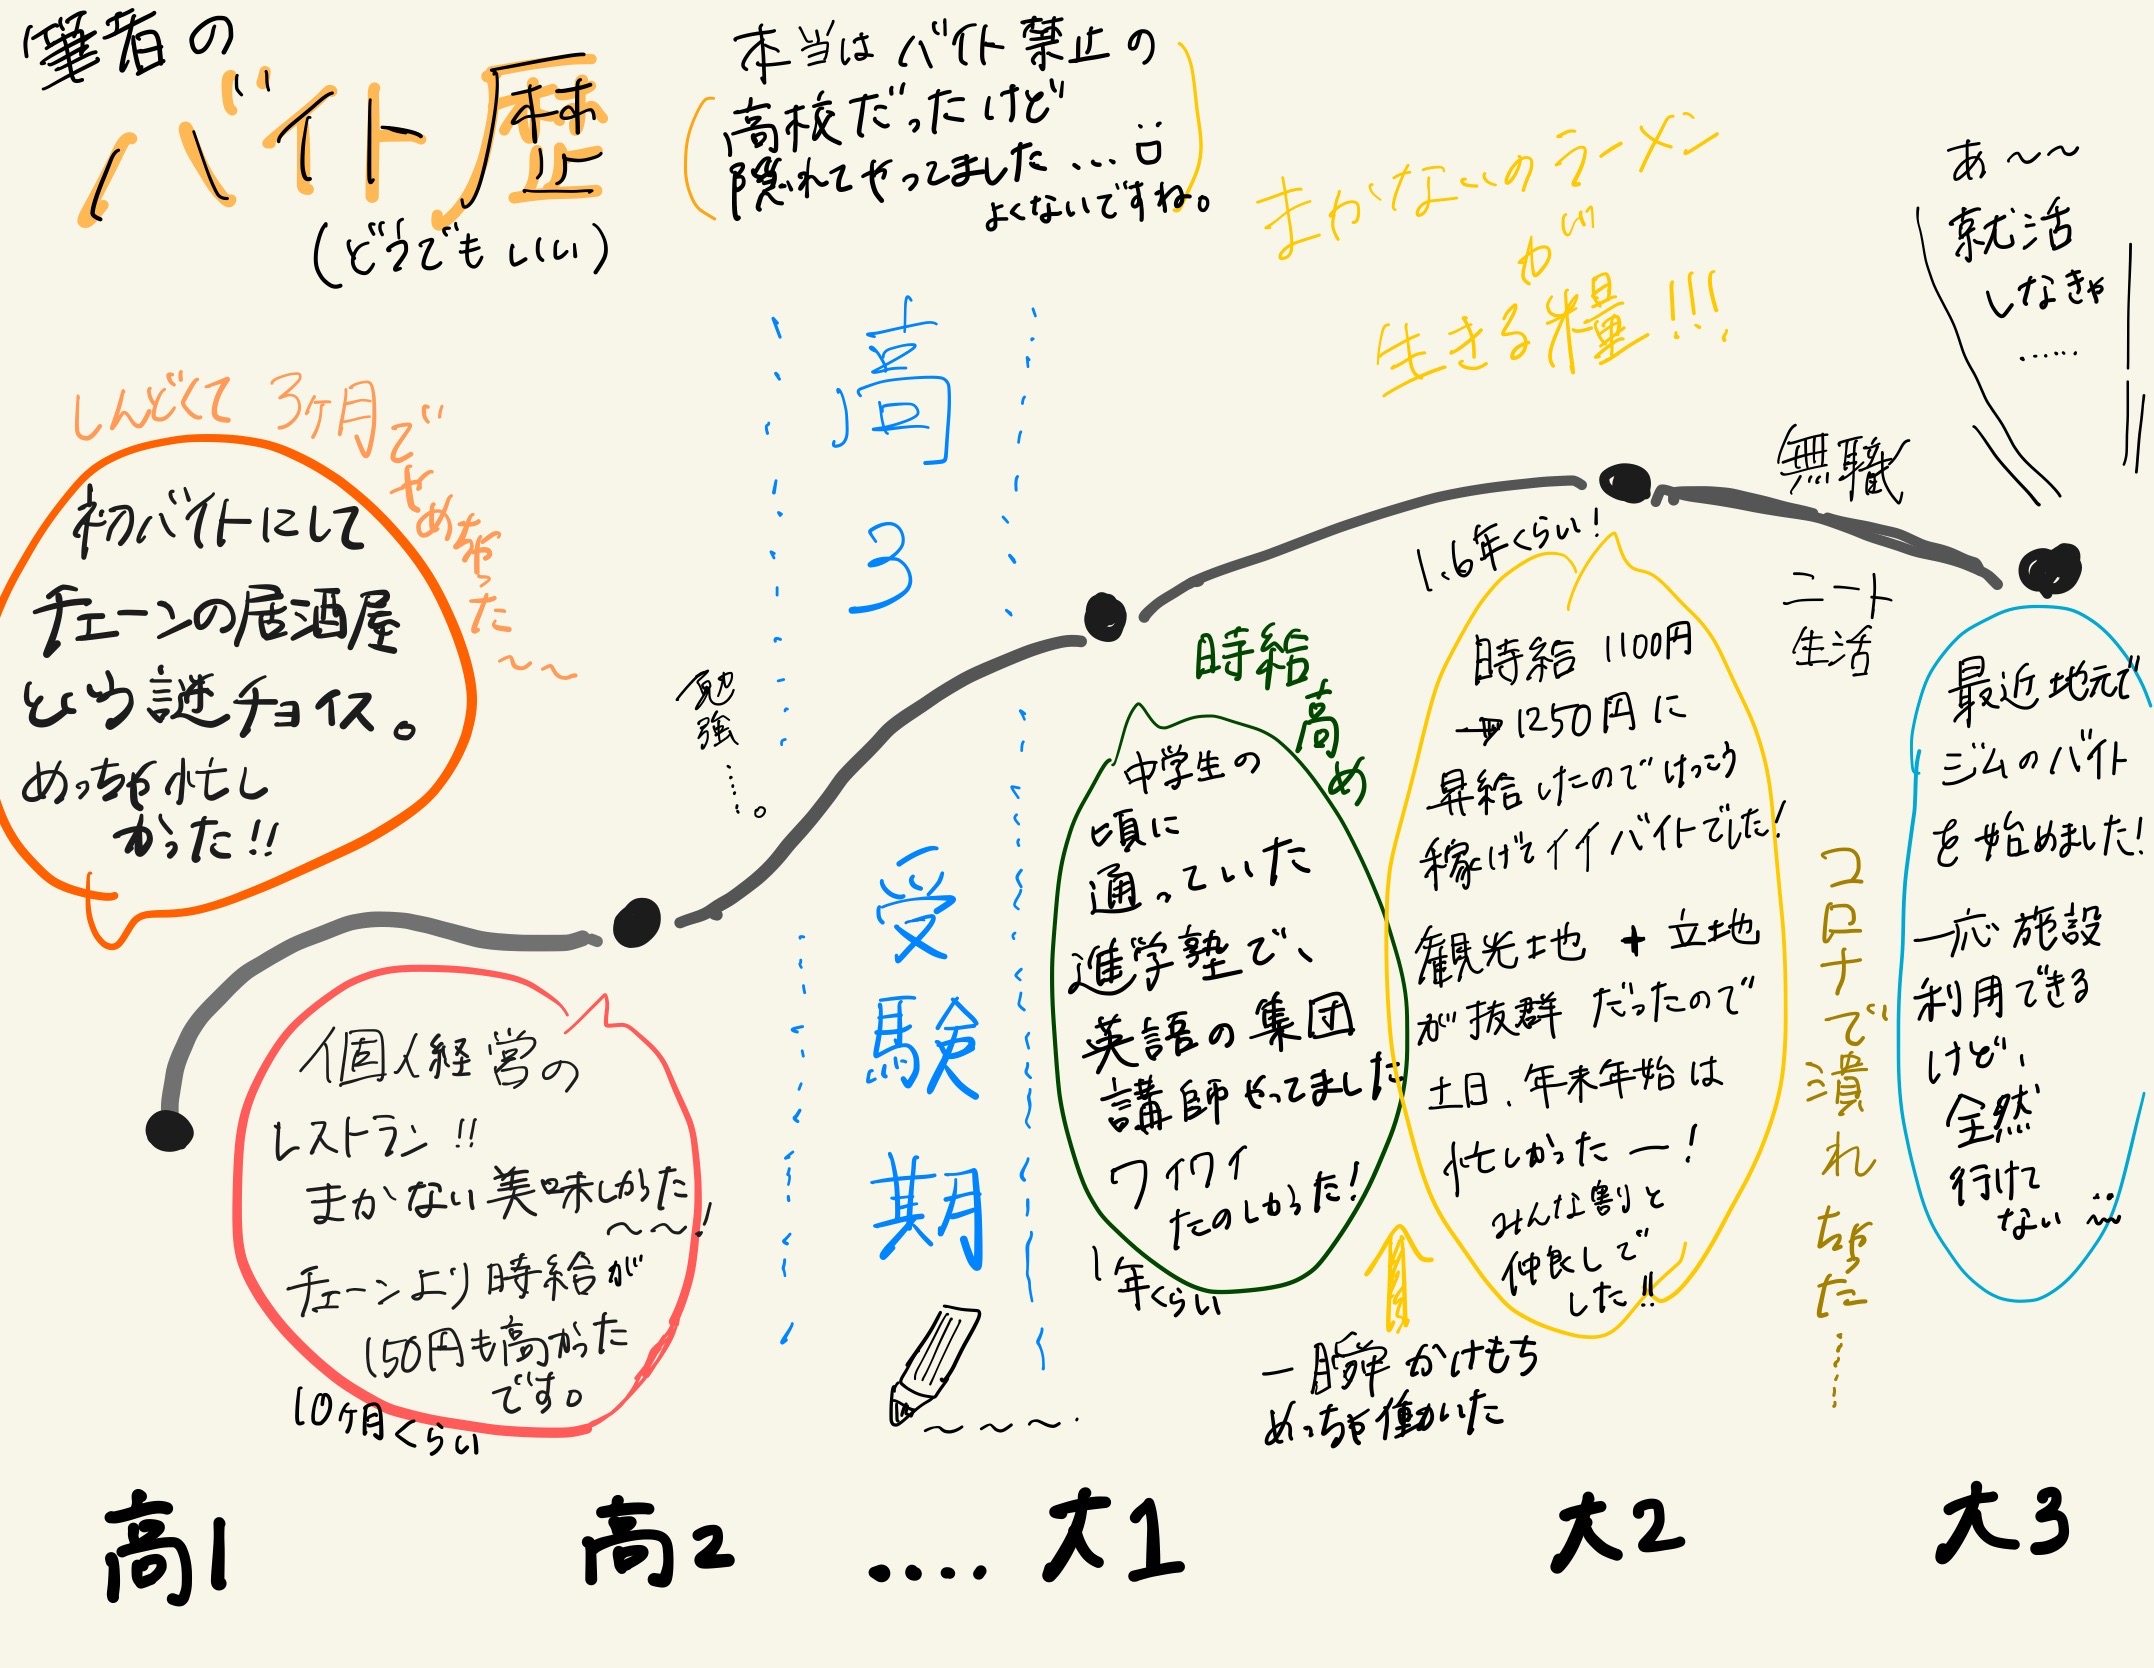 筆者の
バイト歴
(どうでもいい)
本当はバイト禁止の
高校だったけど
隠れてやってました...
よくないですね。
まかないのラーメン
が
生きる糧!!!
あ〜〜
就活
しなきゃ
……
しんどくて3ヶ月でやめちゃった〜〜
初バイトにして
チェーンの居酒屋
という謎チョイス。
めっちゃ忙し
かった!!
個人経営の
レストラン!!
まかない美味しかった
〜〜〜!
チェーンより時給が
150円も高かった
です。
10ヶ月くらい
勉強……。
高3
受験期
〜〜〜.
時給高め
中学生の
頃に
通っていた
進学塾で、
英語の集団
講師やってました
ワイワイ
たのしかった!
1年くらい
一瞬かけもち
めっちゃ働いた
1.6年くらい!
時給1100円
→1250円に
昇給したのでけっこう
稼げてイイバイトでした!
観光地+立地
が抜群だったので
土日.年末年始は
忙しかったー!
みんな割と
仲良しで
した!!
無職
ニート
生活
コロナで潰れちゃった……
最近地元で
ジムのバイト
を始めました!
一応施設
利用できる
けど、
全然
行けて
ない
高1
高2
....
大1
大2
大3